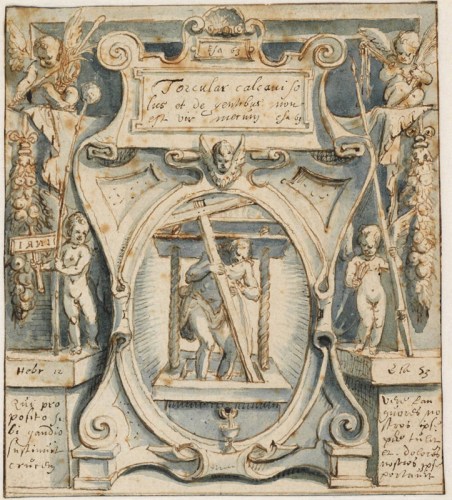 Esa 63
Torcular calcavi so
lus et de gentibus non
est vir mecum esa
INRI
Hebr 12
Esa 53
qui pro
posito si
bi gaudio
sustinuit
crucem
Vere lan
guores no
stros
tulit
et dolores
nostros
portauit